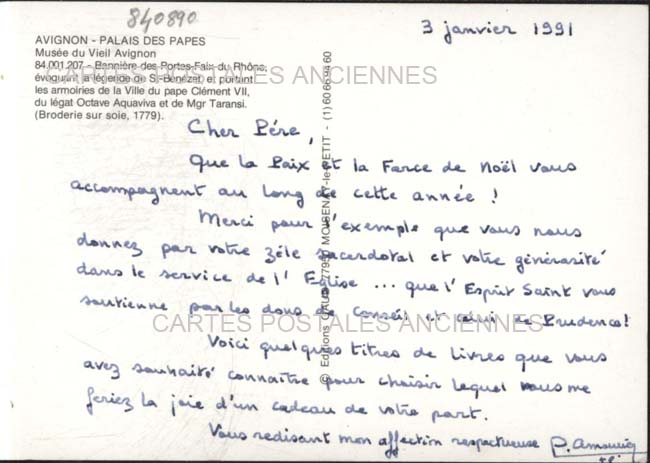 840890
3 janvier 1991
AVIGNON - PALAIS DES PAPES
Musée du Vieil Avignon
84.001.207 - Bannière des Portes-Faix du Rhône,
évoquant la légende de St-Bénézet, et portant
les armoiries de la Ville du pape Clément VII,
du légat Octave Aquaviva et de Mgr Taransi.
(Broderie sur soie, 1779).
CARTES POSTALES ANCIENNES
Cher Père,
Que la Paix et la Farce de Noël vous
accompagnent au long de cette année !
Merci pour l'exemple que vous nous
donnez par votre zèle sacerdotal et votre générosité
dans le service de l'Eglise ... que l'Esprit Saint vous
soutienne par les dons de Conseil et celui de Prudence!
CARTES POSTALES ANCIENNES
Voici quelques titres de livres que vous
avez souhaité connaître pour choisir lequel vous me
feriez la joie d'un cadeau de votre part.
Vous redisant mon affection respectueuse
© Editions GAUD 77950 MOISENAY-le-PETIT - (1) 60 66 94 60